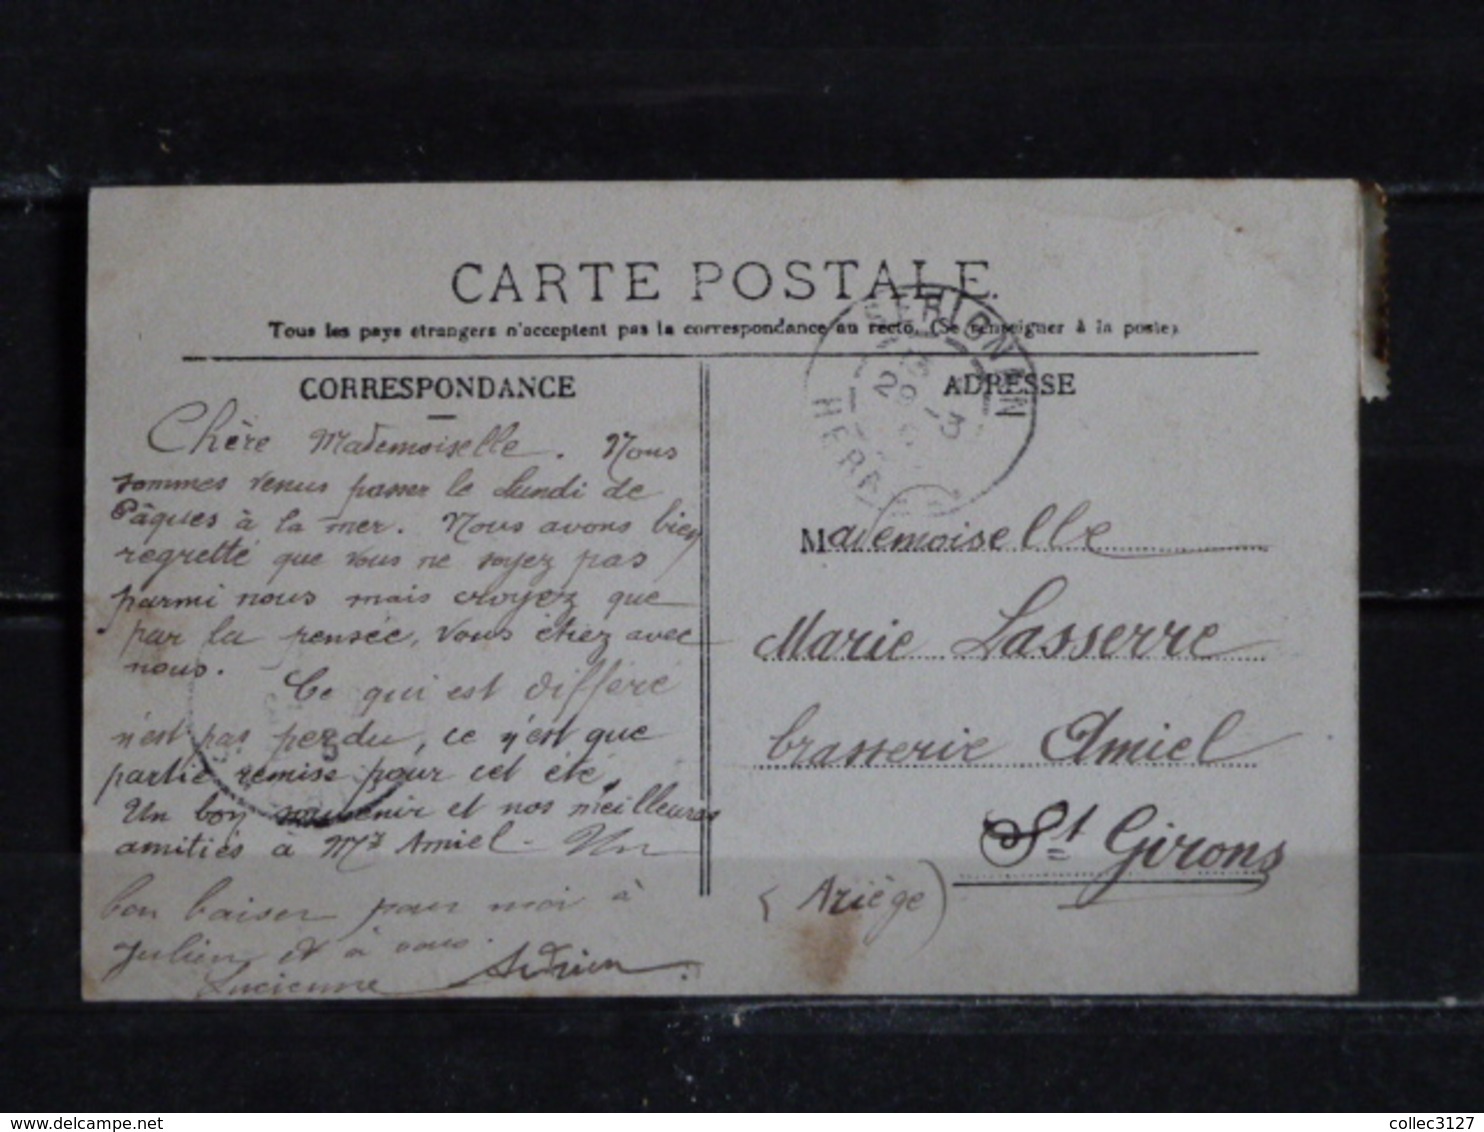 CARTE POSTALE
Tous les pays étrangers n'acceptent pas la correspondance au recto. (Se renseigner à la poste)
CORRESPONDANCE
Chère Mademoiselle. Nous
sommes venus passer le Lundi de
Pâques à la mer. Nous avons bien
regretté que vous ne soyez pas
parmi nous mais croyez que
par la pensée, vous étiez avec
nous.
Ce qui est différé
n'est pas perdu, ce n'est que
partie remise pour cet été.
Un bon souvenir et nos meilleures
amitiés à Mr Amiel - Un
bon baiser pour moi à
Julien et à vous.
Lucienne Adrien
ADRESSE
Mademoiselle
Marie Lasserre
brasserie Amiel
St Girons
(Ariège)
29 -3
HERAULT
collec3127